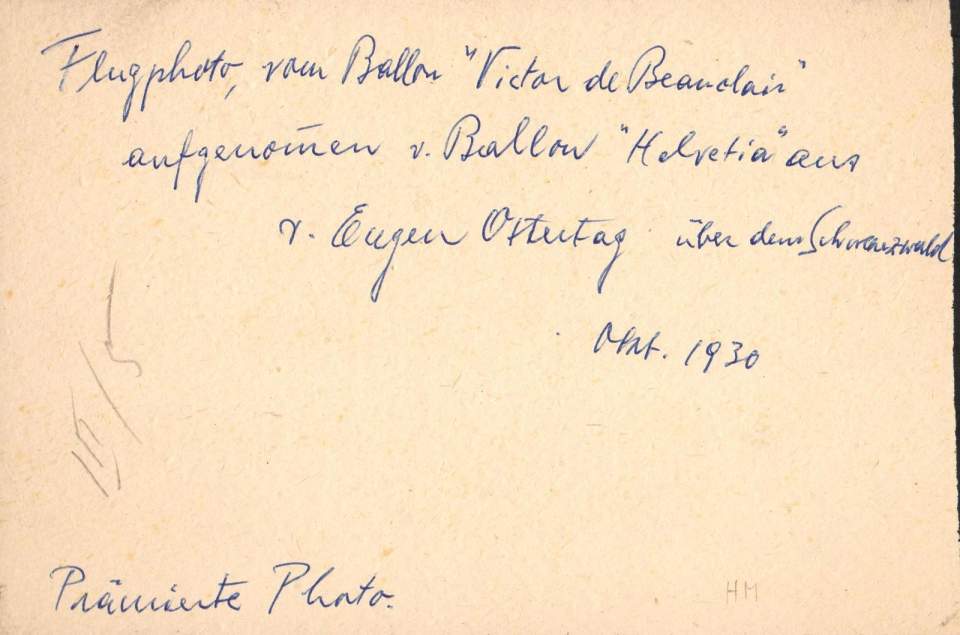 Flugphoto, vom Ballon "Victor de Beauclair"
aufgenom̄en v. Ballon "Helvetia" aus
v. Eugen Ostertag über dem Schwarzwald
Okt. 1930
Prämierte Photo.
HM